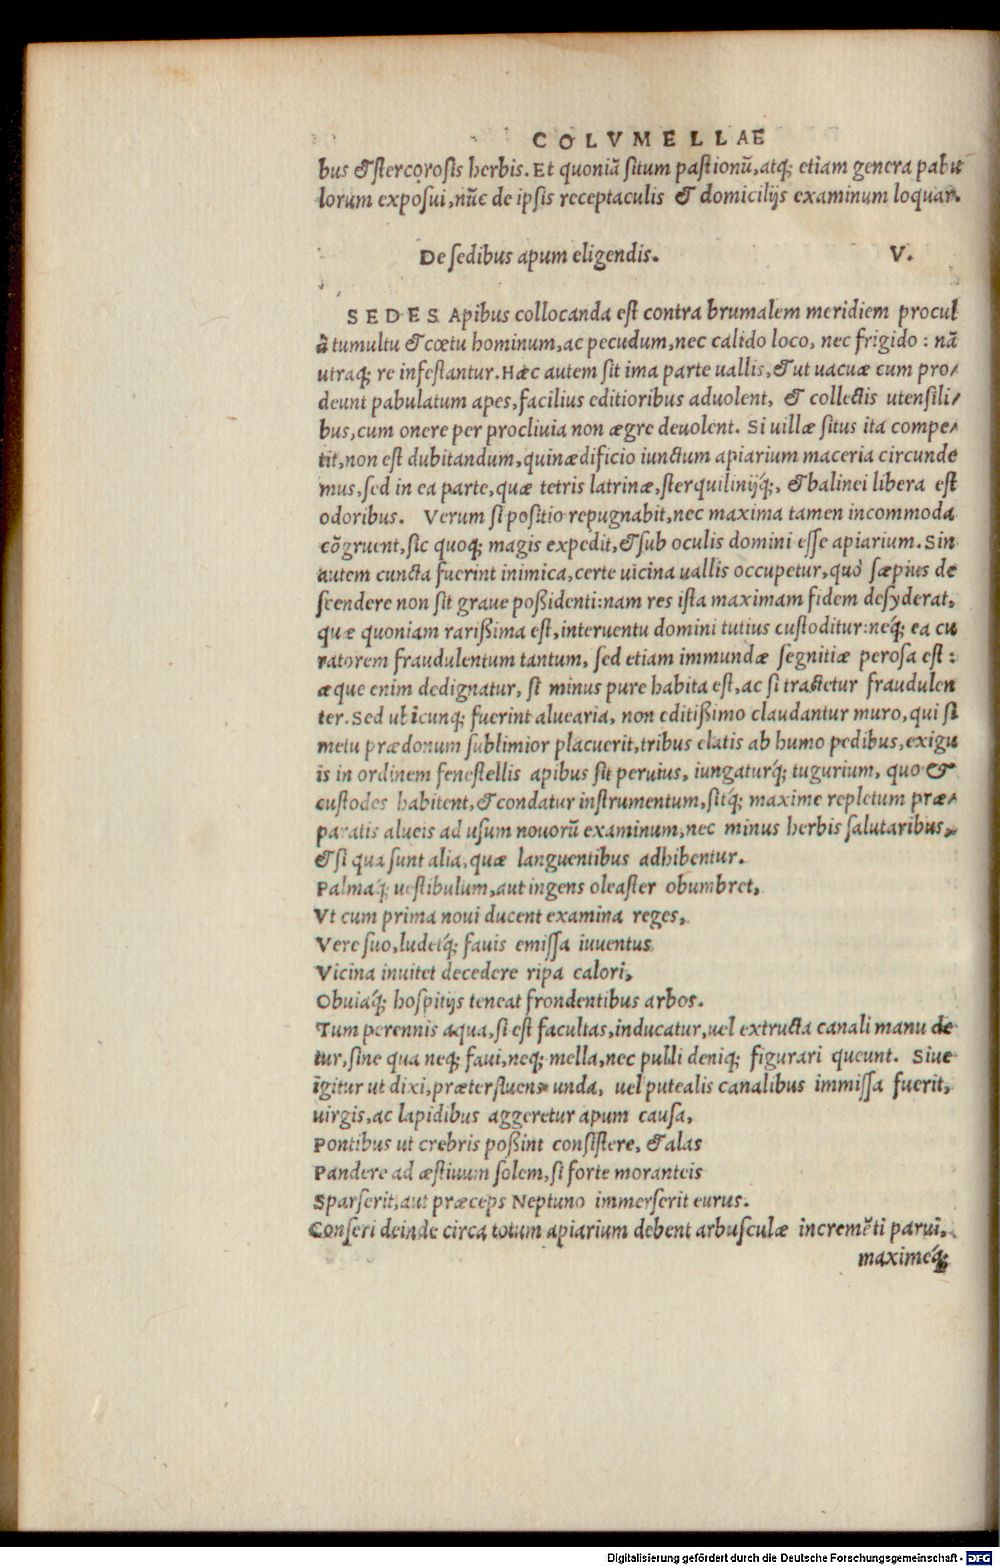 COLVMELLAE
bus & stercorosis herbis. Et quoniā situm pastionū, atq; etiam genera pabu
lorum exposui, nūc de ipsis receptaculis & domicilijs examinum loquar.
De sedibus apum eligendis. V.
SEDES Apibus collocanda est contra brumalem meridiem procul
à tumultu & cœtu hominum, ac pecudum, nec calido loco, nec frigido: nā
utraq; re infestantur. Hæc autem sit ima parte uallis, & ut uacuæ cum pro/
deunt pabulatum apes, facilius editioribus aduolent, & collectis utensili/
bus, cum onere per procliuia non ægre deuolent. Si uillæ situs ita compe/
tit, non est dubitandum, quin ædificio iunctum apiarium maceria circunde
mus, sed in ea parte, quæ tetris latrinæ, sterquilinijq́;, & balinei libera est
odoribus. Verum si positio repugnabit, nec maxima tamen incommoda
cōgruent, sic quoq; magis expedit, & sub oculis domini esse apiarium. Sin
autem cuncta fuerint inimica, certe uicina uallis occupetur, quò sæpius de
scendere non sit graue poßidenti: nam res ista maximam fidem desyderat,
quæ quoniam rarißima est, interuentu domini tutius custoditur: neq́; ea cu
ratorem fraudulentum tantum, sed etiam immundæ segnitiæ perosa est:
æque enim dedignatur, si minus pure habita est, ac si tractetur fraudulen
ter. Sed ubicunq; fuerint aluearia, non editißimo claudantur muro, qui si
metu prædonum sublimior placuerit, tribus elatis ab humo pedibus, exigu
is in ordinem fenestellis apibus sit peruius, iungaturq́; tugurium, quo &
custodes habitent, & condatur instrumentum, sitq́; maxime repletum præ/
paratis alueis ad usum nouorū examinum, nec minus herbis salutaribus,
& si qua sunt alia, quæ languentibus adhibentur.
Palmaq́; uestibulum, aut ingens oleaster obumbret,
Vt cum prima noui ducent examina reges,
Vere suo, ludetq́; fauis emissa iuuentus
Vicina inuitet decedere ripa calori,
Obuiaq́; hospitijs teneat frondentibus arbos.
Tum perennis aqua, si est facultas, inducatur, uel extructa canali manu de
tur, sine qua neq; faui, neq; mella, nec pulli deniq; figurari queunt. Siue
igitur ut dixi, præterfluens unda, uel putealis canalibus immissa fuerit,
uirgis, ac lapidibus aggeretur apum causa,
Pontibus ut crebris poßint consistere, & alas
Pandere ad æstiuum solem, si forte moranteis
Sparserit, aut præceps Neptuno immerserit eurus.
Conseri deinde circa totum apiarium debent arbusculæ incremēti parui,
maximeq́;
Digitalisierung gefördert durch die Deutsche Forschungsgemeinschaft - DFG